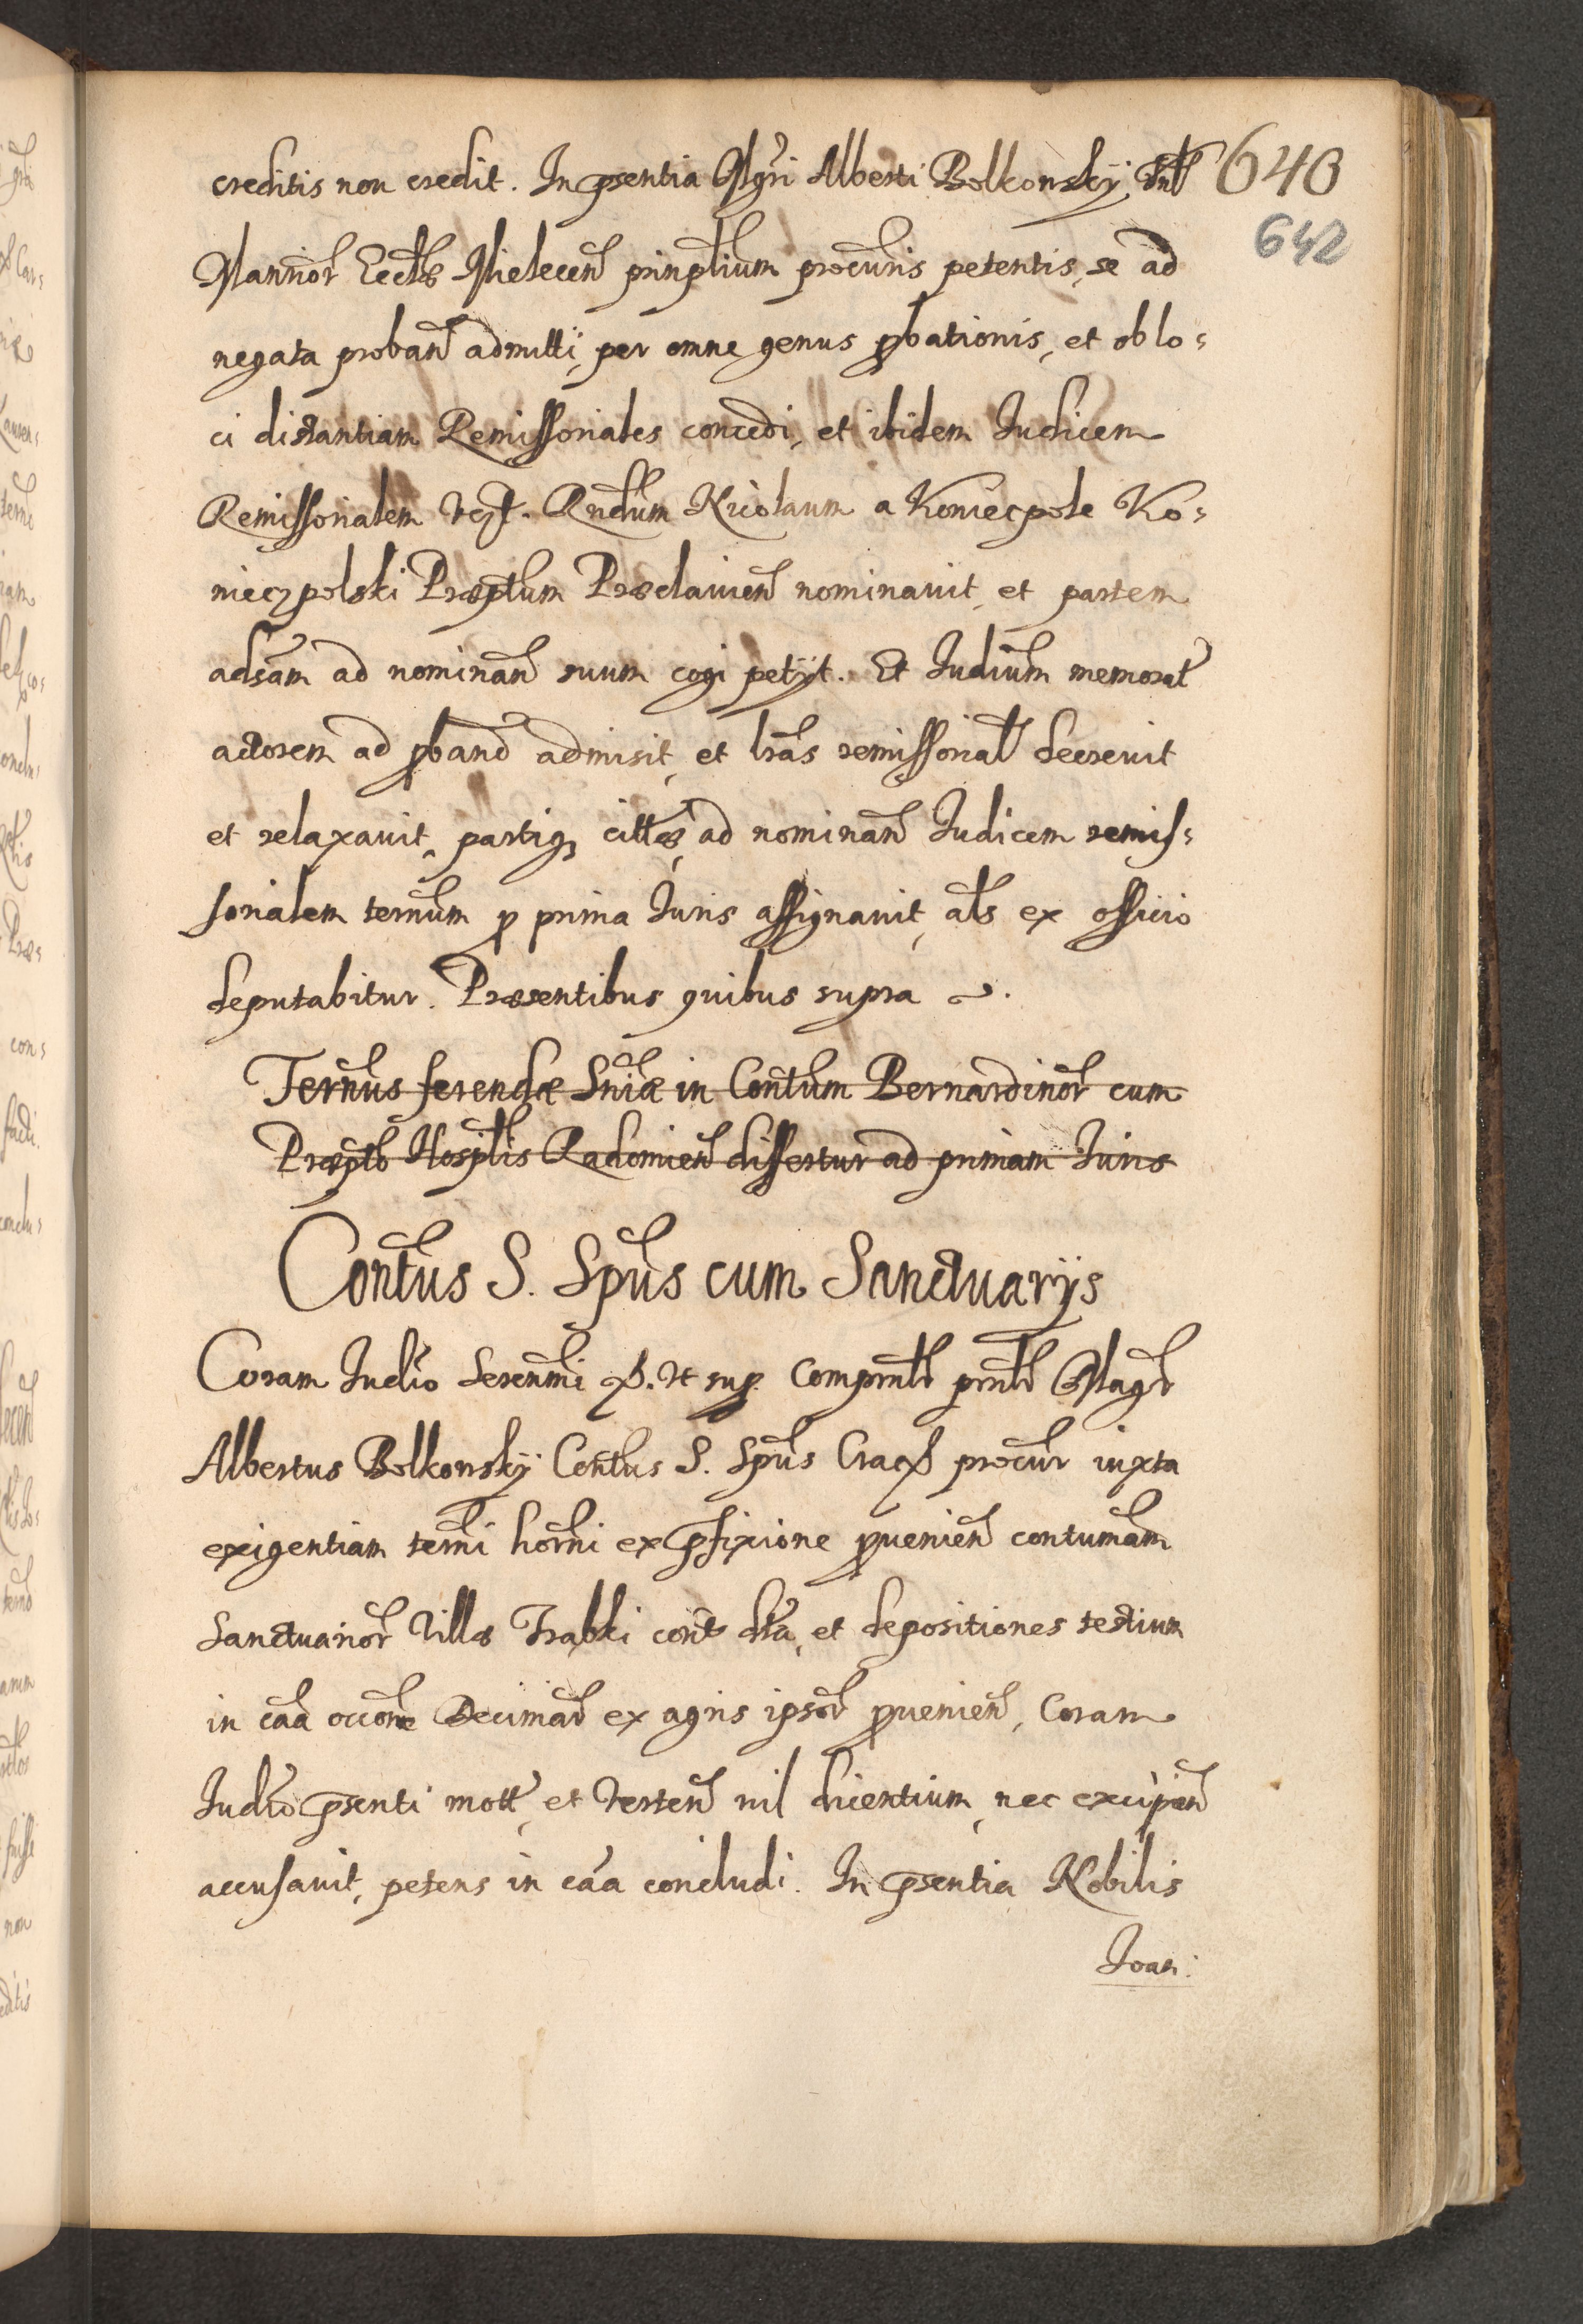 creditis non credit. In psentia Mgri Alberti Bolkonsky, Vnl 640
642
Mannor Ecctæ Mielecen prinptium procuris petentis, se ad
negata proban admitti, per omne genus pbationis, et ob lo=
ci distantiam Remissoriales concedi, et ibidem Iudicem
Remissorialem Rndum Nicolaum a Koniecpole Ko=
niecpolski Præptum Præclauien nominauit, et partem
adsam ad nominan suum cogi petyt. Et Iudium memorat
actorem ad pband admisit, et lras remissorial decreuit
et relaxauit, partiq cittæ, ad nominan Iudicem remis=
sorialem ternum p prima Iuris assignauit, als ex officio
deputabitur. Præsentibus quibus supra
Ternus ferendæ Sniæ in Contum Bernardinor cum
Præpto Hosptlis Radomien differtur ad primam Iuris
Contus S. Spus cum Sanctuarijs
Coram Iudio Serenmi Vt sup. Comprntr prntr Magr
Albertus Bolkonsky Contus S. Spus Crac procur iuxta
exigentiam terni horni ex pfixione puenien contumam
Sanctuarior Villæ Trabki cont dta, et depositiones testium
in caa occone Decimar ex agris ipsor puenien, Coram
Iudio psenti mott, et Verten nil dicentium, nec excipien
accusauit, petens in caa concludi. In psentia Nobilis
Ioan: